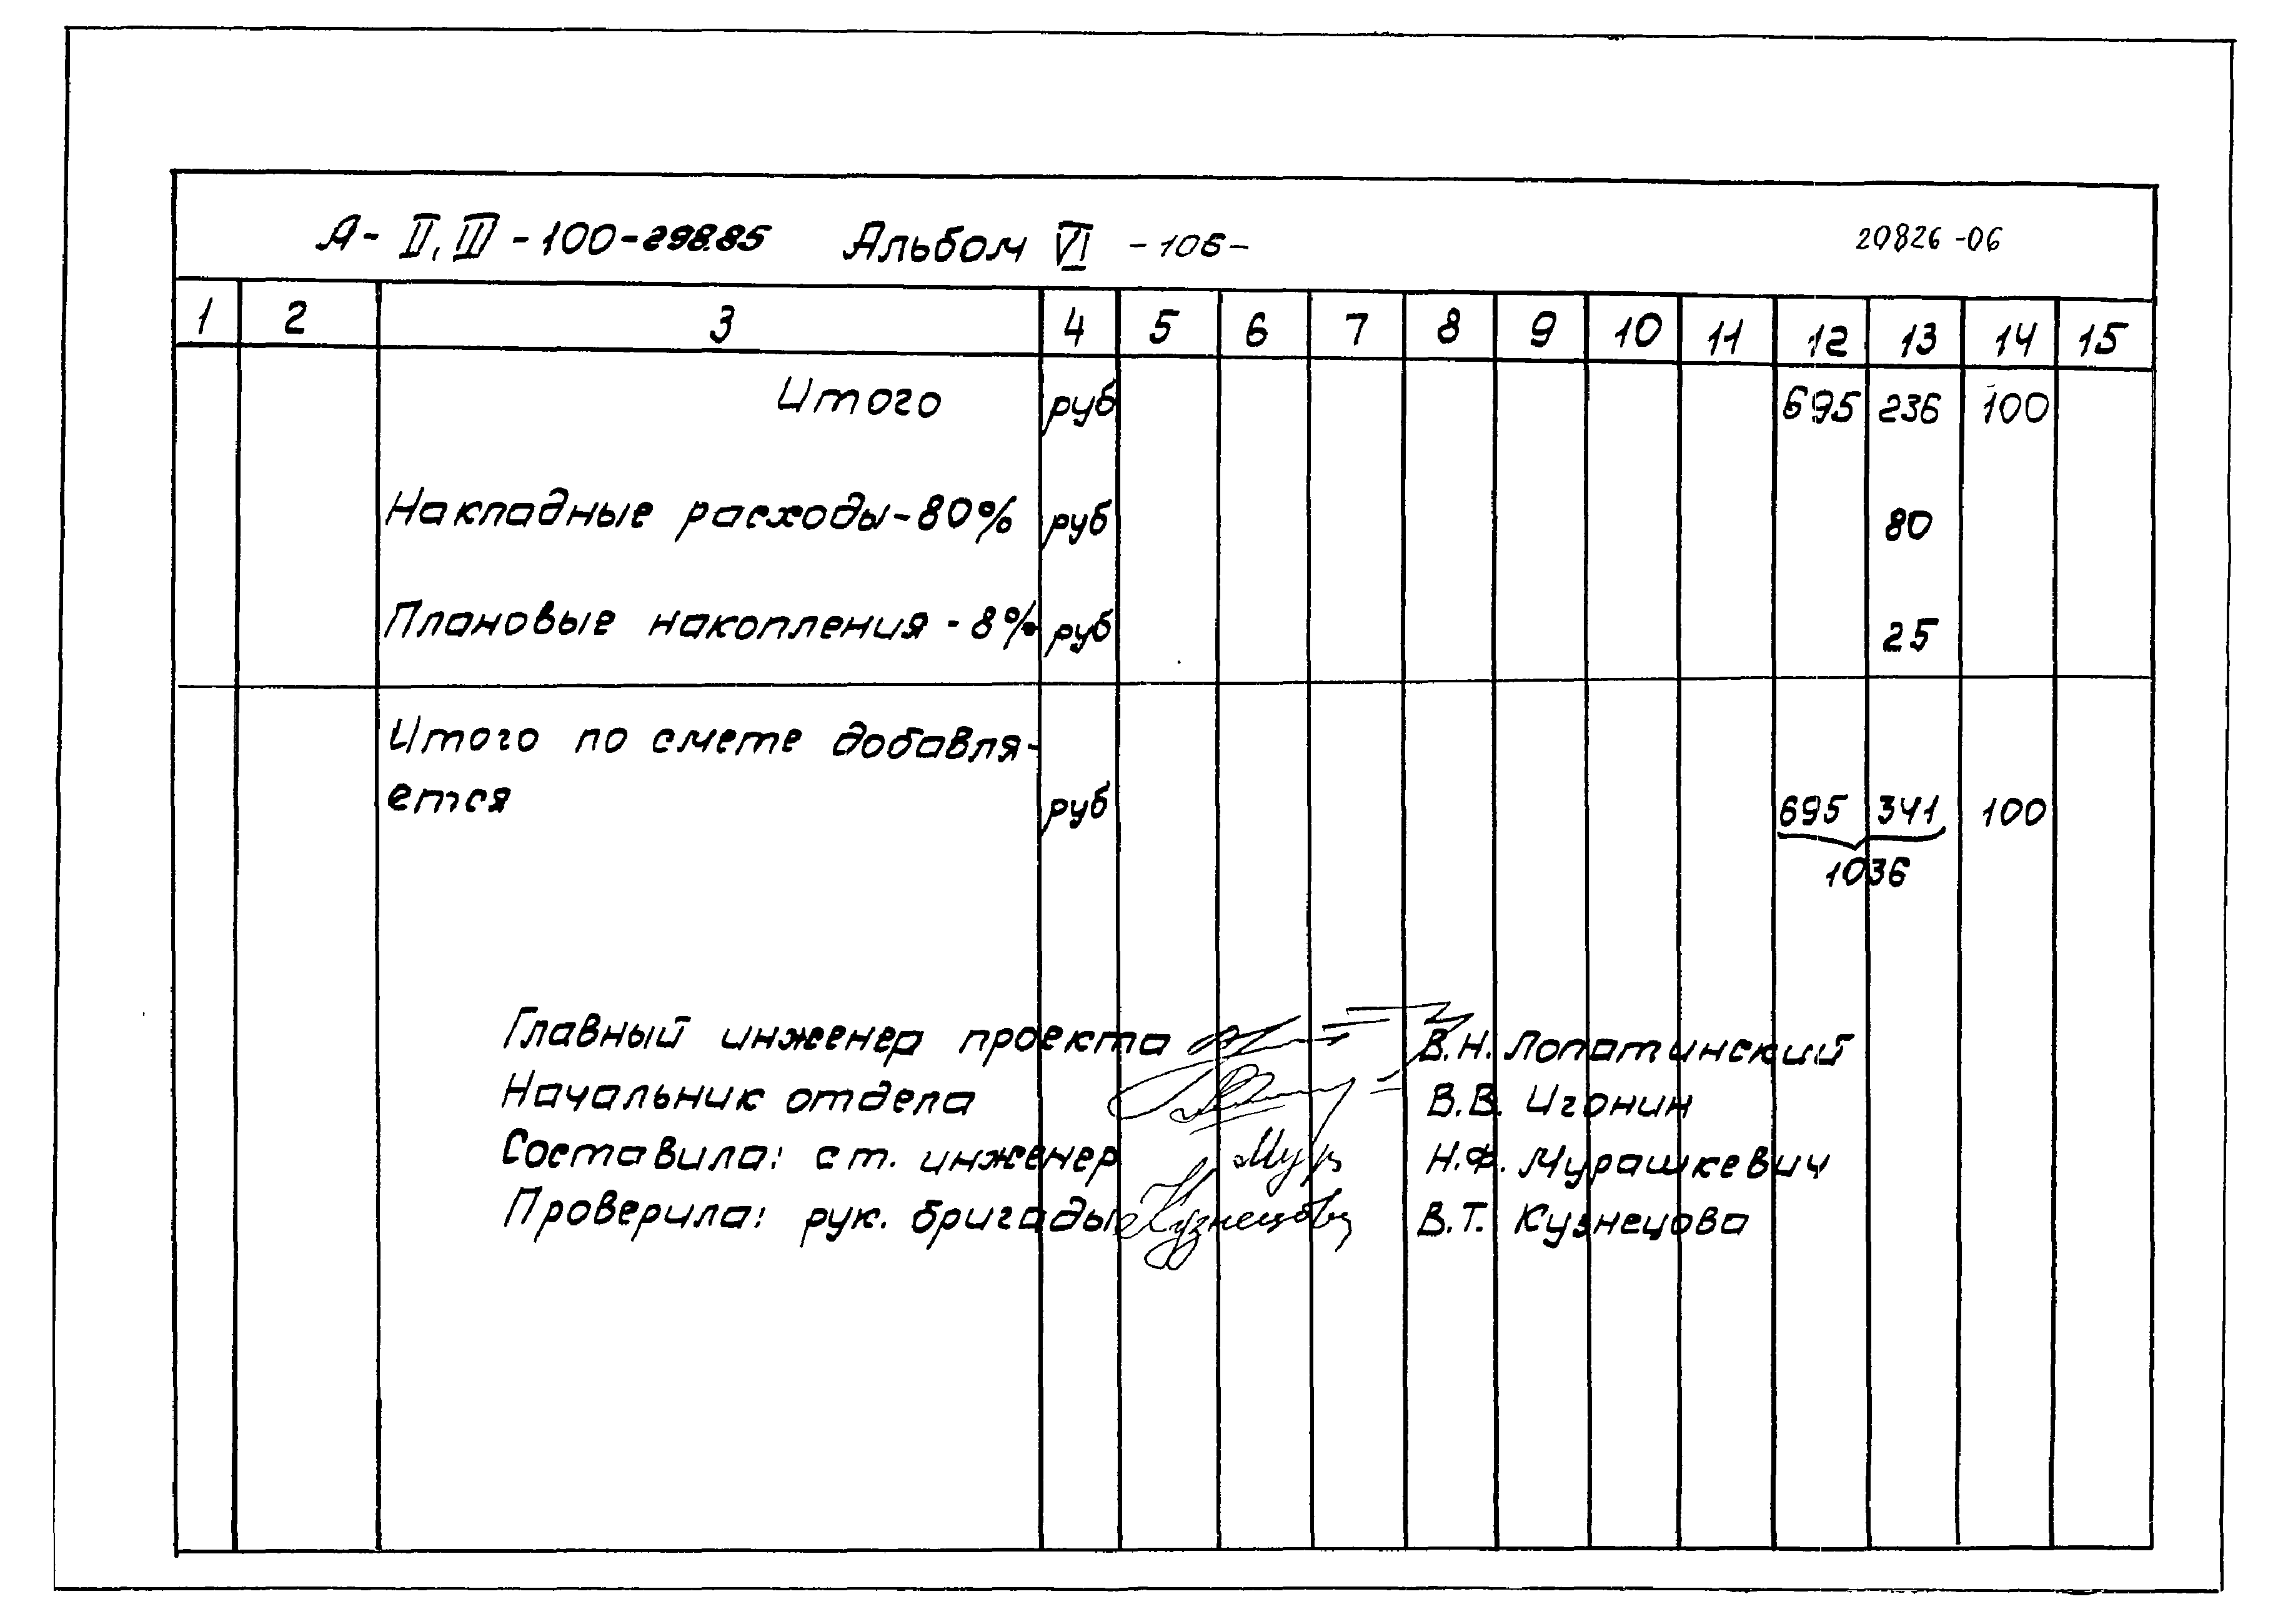 А- II, III - 100-298.85 Альбом VI - 106 - 20826 -06
1 2 3 4 5 6 7 8 9 10 11 12 13 14 15
Итого руб 695 236 100
Накладные расходы-80% руб 80
Плановые накопления - 8% руб 25
Итого по смете добавля-
ется руб 695 341 100
1036
Главный инженер проекта В.Н. Лопатинский
Начальник отдела В.В. Игонин
Составила: ст. инженер Мур Н.Ф. Мурашкевич
Проверила: рук. бригады Кузнецова В.Т. Кузнецова